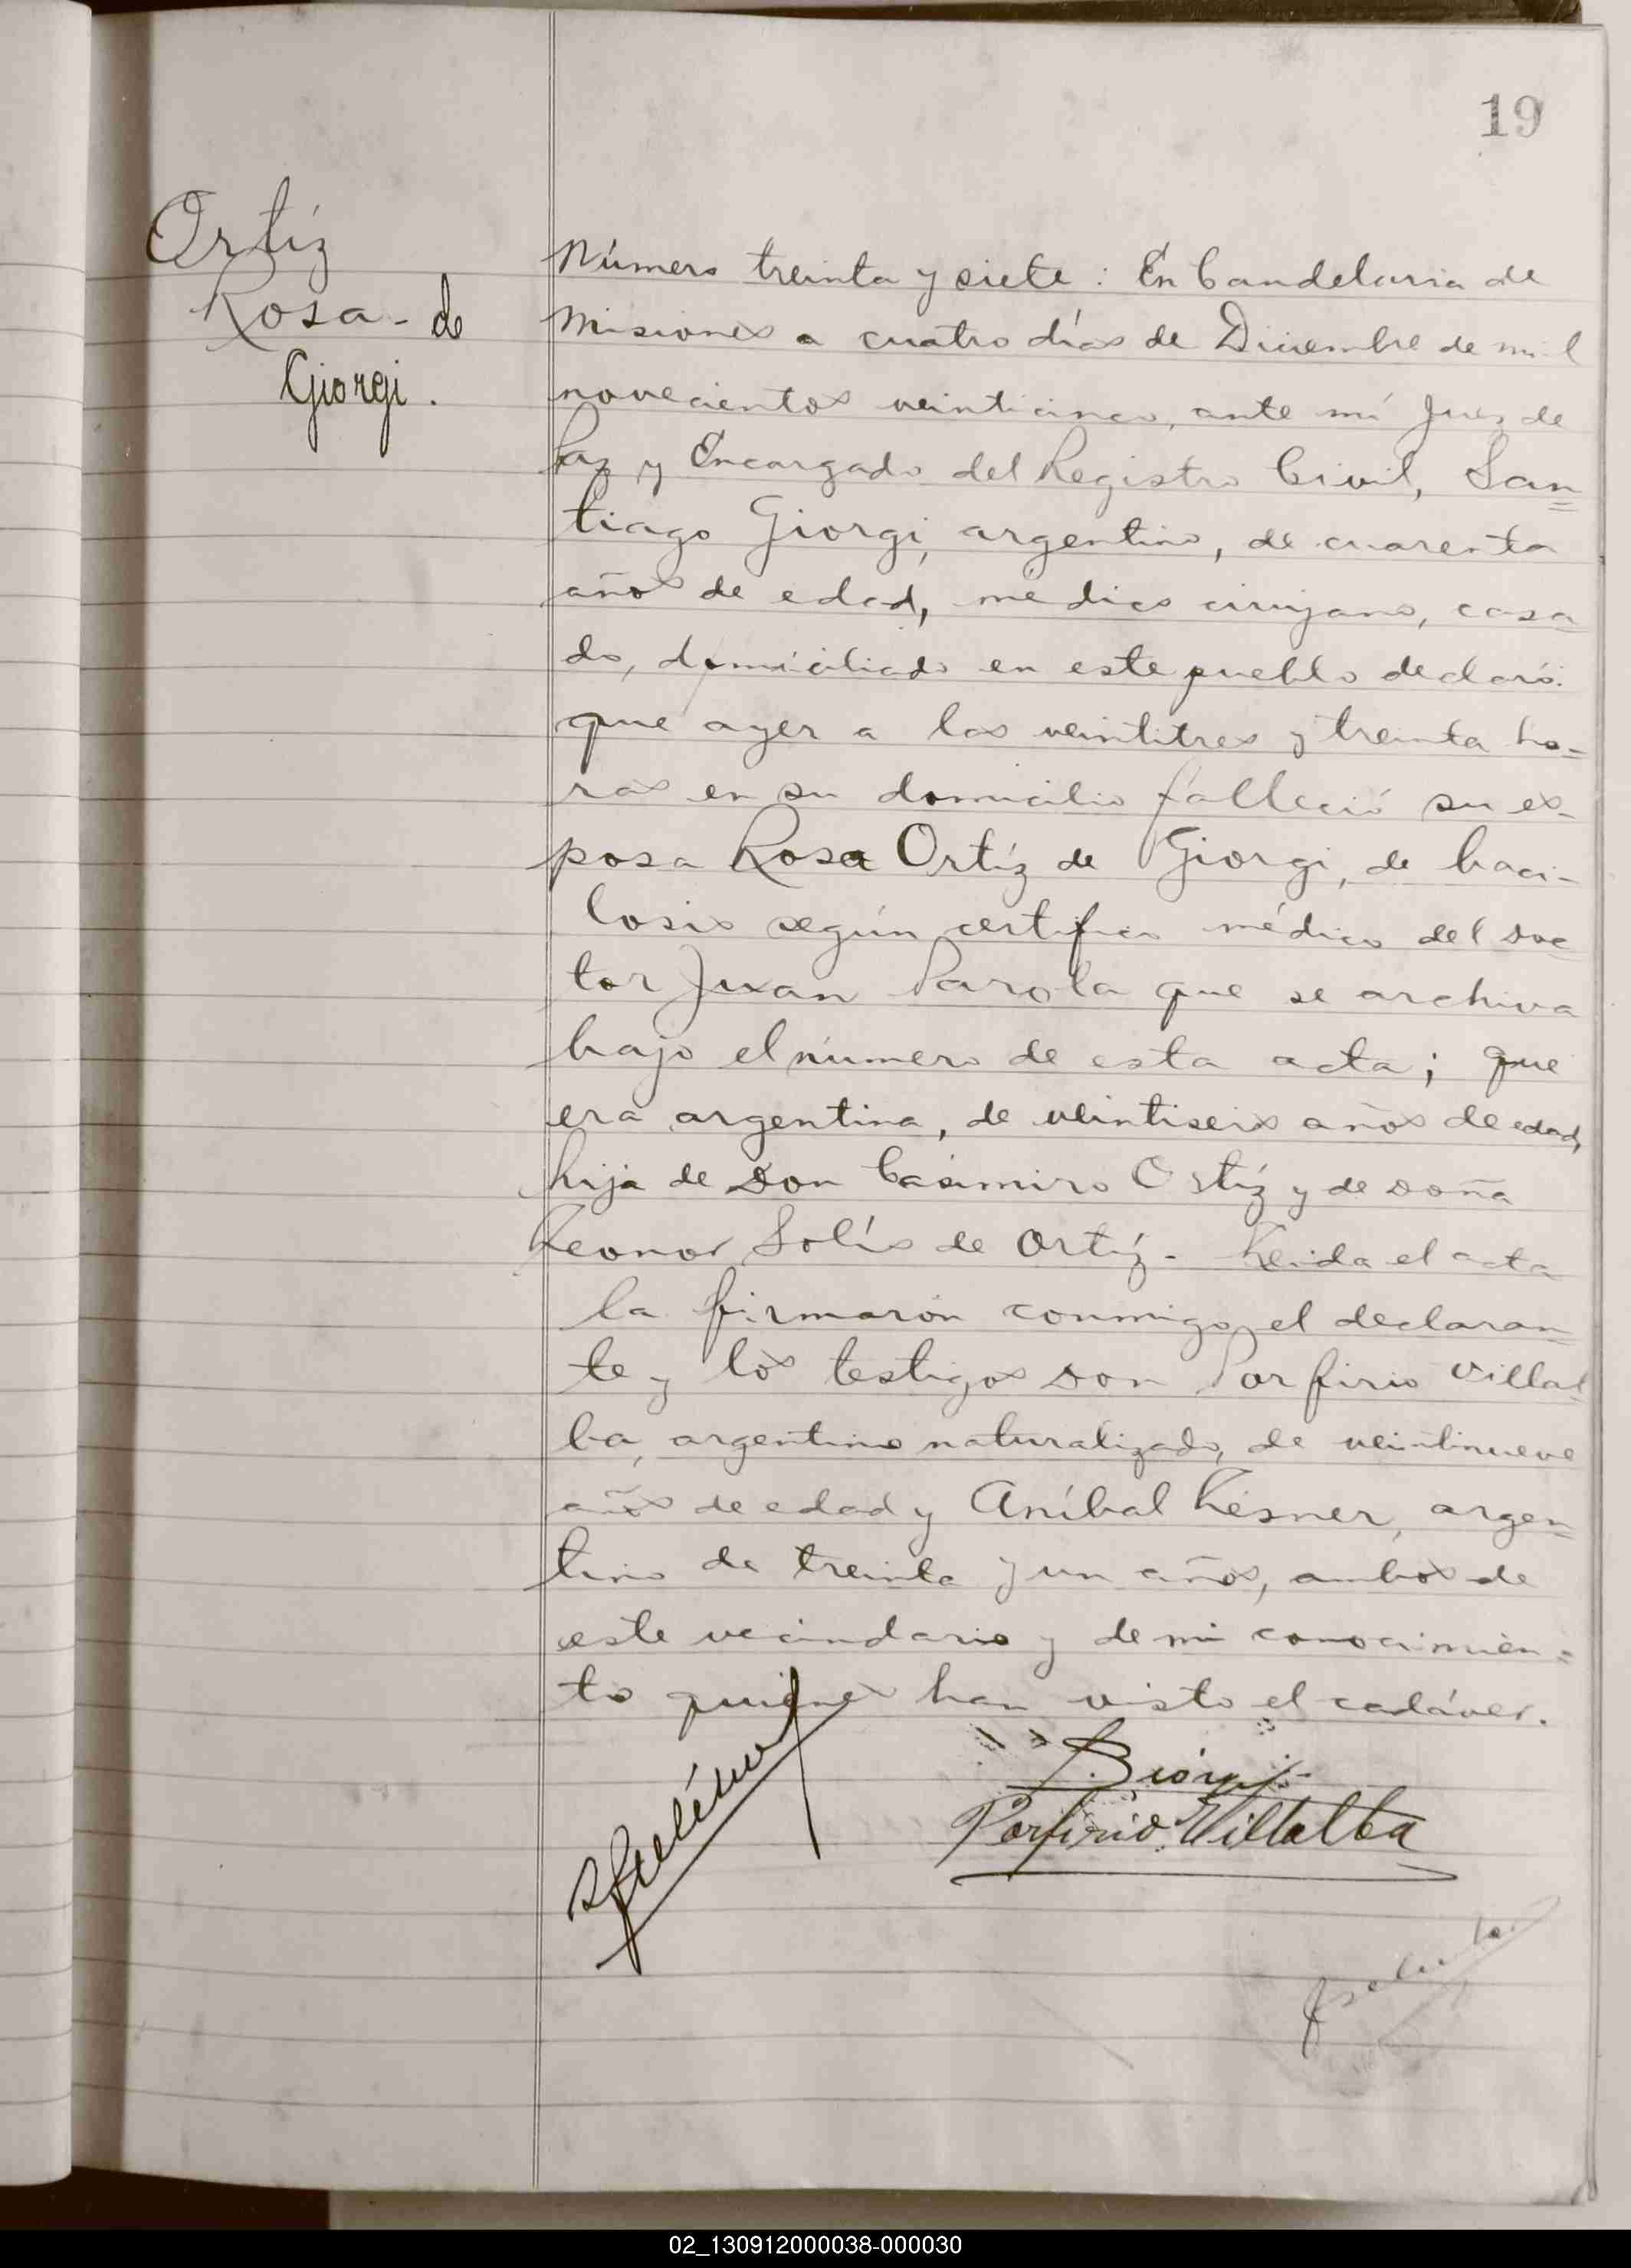 19
Ortíz
Rosa - de
Giorgi.
Número treinta y siete : En Candelaria de
Misiones a cuatro días de Diciembre de mil
novecientos veinticinco, ante mí Juez de
Paz y Encargado del Registro Civil, San=
tiago Giorgi, argentino, de cuarenta
años de edad, médico cirujano, casa
do, domiciliado en este pueblo declaró:
que ayer a las veintitres y treinta ho=
ras en su domicilio falleció su es-
posa Rosa Ortíz de Giorgi, de baci-
losis según certifica médico del Doc
tor Juan Parola que se archiva
bajo el número de esta acta; que
era argentina, de veintiseis años de edad,
hija de Don Casimiro Ortíz y de Doña
Leonor Solís de Ortíz - Leida el acta
la firmarón conmigo el declaran=
te y los testigos Don Porfirio Villal=
ba, argentino naturalizado, de veintinueve
años de edad y Aníbal Lesner, argen=
tino de treinta y un años, ambos de
este vecindario y de mi conocimien=
to quienes han visto el cadáver.
Giorgi
Porfirio Villalba
02_130912000038-000030